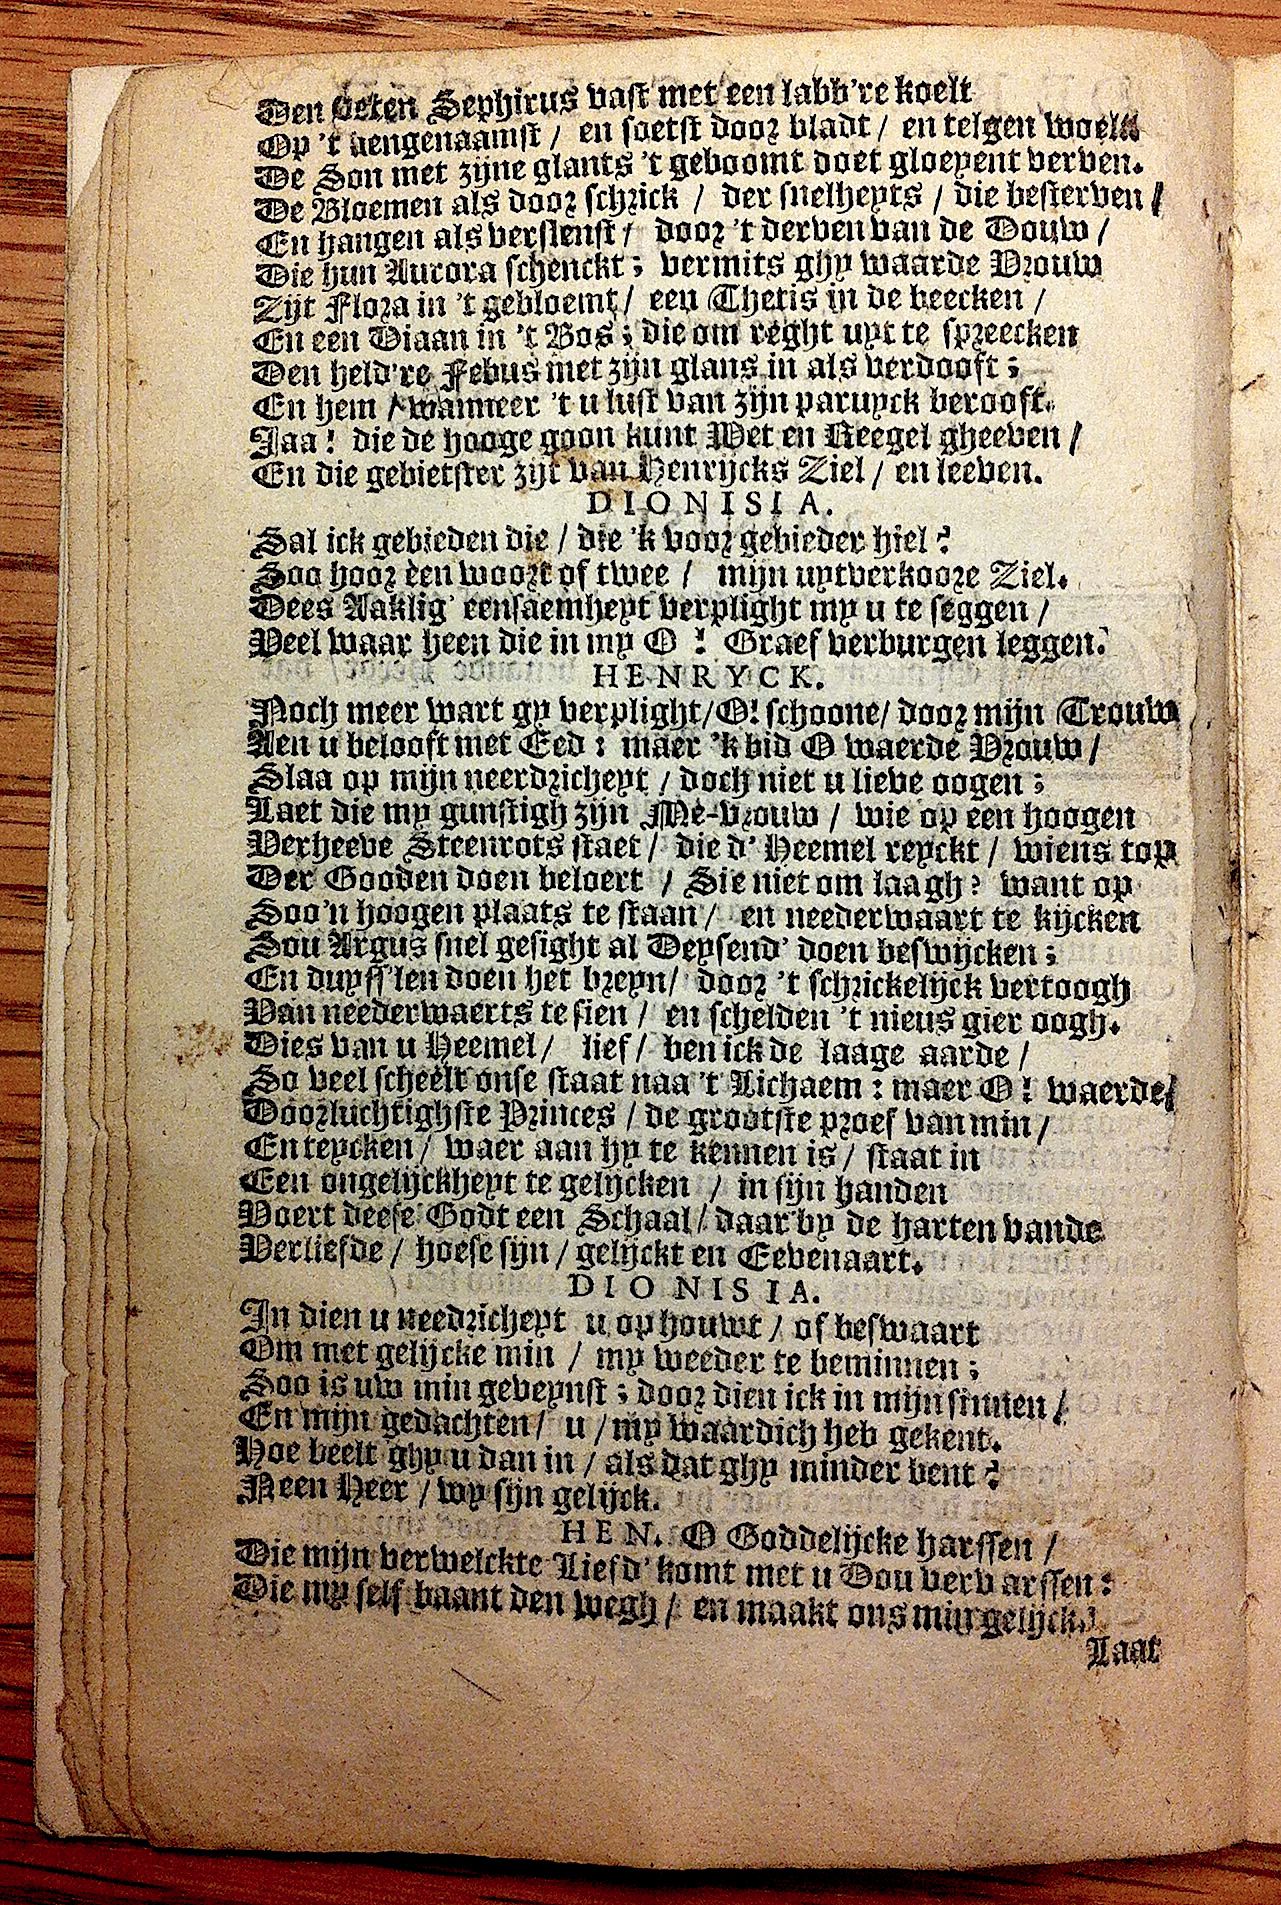 Den soeten Sephirus vast met een labb're koelt
Op 't aengenaamst / en soetst door bladt / en telgen woelt
De Son met zijne glants 't geboomt doet gloeyent verven.
De Bloemen als door schrick / der snelheyts / die besterven /
En hangen als verslenst / door 't derven van de Douw /
Die hun Aurora schenckt ; vermits ghy waarde Vrouw
Zijt Flora in 't gebloemt / een Thetis in de beecken /
En een Diaan in 't Bos ; die om reght uyt te spreecken
Den held're Febus met zijn glans in als verdooft ;
En hem / wanneer 't u lust van zijn paruyck berooft.
Jaa ! die de hooge goon kunt Wet en Reegel gheeven /
En die gebietster zijt van Henrijcks Ziel / en leeven.
DIONISIA.
Sal ick gebieden die / die 'k voor gebieder hiel ?
Soo hoor een woort of twee / mijn uytverkoore Ziel.
Dees Aaklig' eensaemheyt verplight my u te seggen /
Veel waar heen die in my O ! Graef verburgen leggen.
HENRYCK.
Noch meer wart gy verplight / O! schoone / door mijn Trouw
Aen u belooft met Eed : maer 'k bid O waerde Vrouw /
Slaa op mijn neerdricheyt / doch niet u lieve oogen ;
Laet die my gunstigh zijn Me-vrouw / wie op een hoogen
Verheeve Steenrots staet / die d' Heemel reyckt / wiens top
Der Gooden doen beloert / Sie niet om laagh ? want op
Soo'n hoogen plaats te staan / en neederwaart te kijcken
Sou Argus snel gesight al Deysend' doen beswijcken ;
En duyss'len doen het breyn / door 't schrickelijck vertoogh
Van neederwaerts te sien / en schelden 't nieus gier oogh.
Dies van u Heemel / lief / ben ick de laage aarde /
So veel scheelt onse staat naa 't Lichaem : maer O ! waerde /
Doorluchtighste Princes / de grootste proef van min /
En teycken / waer aan hy te kennen is / staat in
Een ongelijckheyt te gelijcken / in sijn handen
Voert deese Godt een Schaal / daar by de harten vande
Verliefde / hoese sijn / gelijckt en Eevenaart.
DIONISIA.
In dien u needricheyt u ophouwt / of beswaart
Om met gelijcke min / my weeder te beminnen ;
Soo is uw min geveynst ; door dien ick in mijn sinnen /
En mijn gedachten / u / my waardich heb gekent.
Hoe beelt ghy u dan in / als dat ghy minder bent ?
Neen Heer / wy sijn gelijck.
HEN. O Goddelijcke harssen /
Die mijn verwelckte Liefd' komt met u Dou vervarssen :
Die my self baant den wegh / en maakt ons min gelijck.
Laat